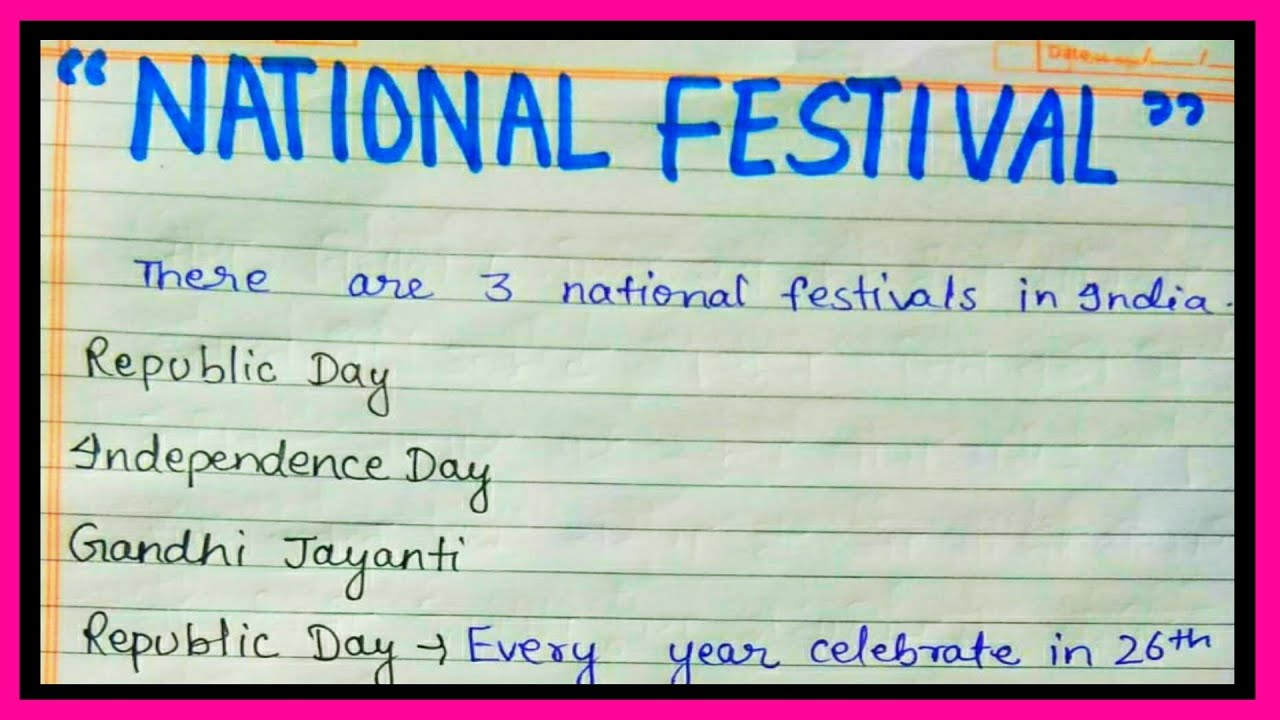 Date
“NATIONAL FESTIVAL”
There are 3 national festivals in India.
Republic Day
Independence Day
Gandhi Jayanti
Republic Day → Every year celebrate in 26th